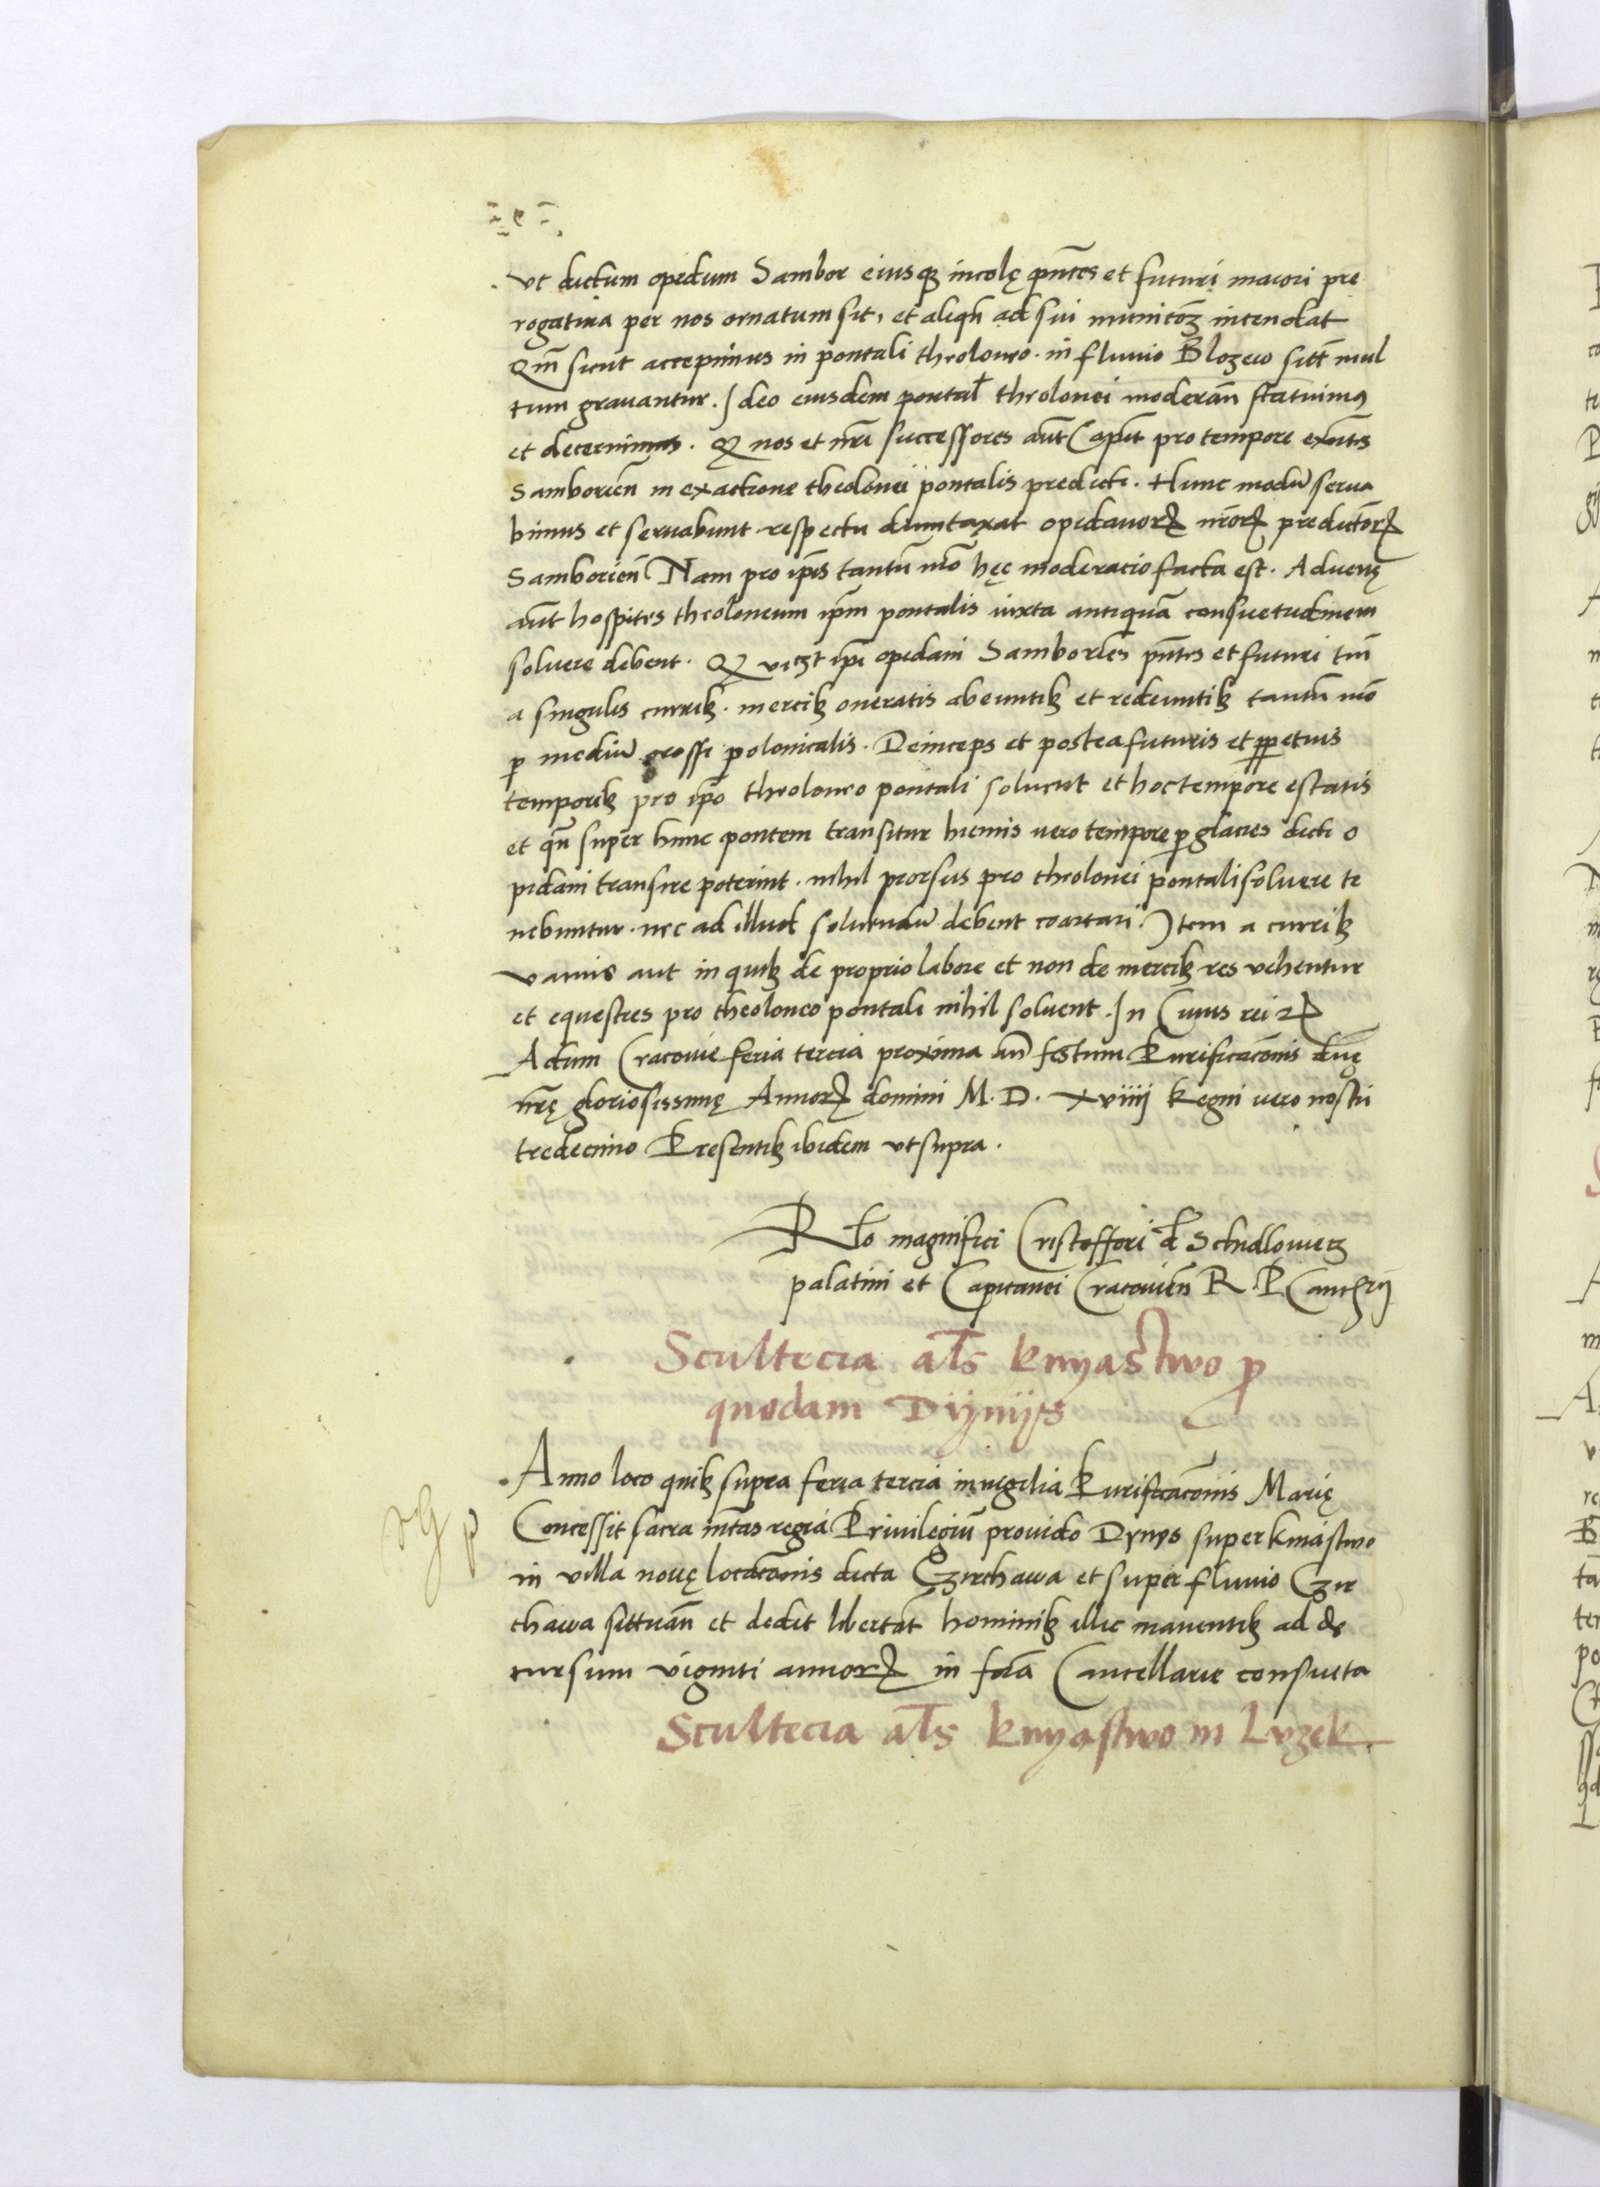 Vt dictum opidum Sambor eiusq3 incolę pñtes et futuri maiori pre
rogatiua per nos ornatum sit, et aliqñ ad sui municõ3 intendat
Qm̃ sicut accepimus in pontali theoloneo. in fluuio Blozew sitt̃ mul
tum grauantur. Ideo eiusdem pontał theolonei moderañ statuimus
et decernimus. Q nos et nr̃i successores aut̃ Capit̃ pro tempore exñtes
Samborieñ in exactione theolonei pontalis predicti. Hunc modũ serua
bimus et seruabunt respectu dumtaxat opidanorꝝ nr̃orꝝ predictorꝝ
Samborieñ Nam pro ip̃is tantũmõ hęc moderacio facta est. Aduenę
aut̃ hospites theoloneum ip̃m pontalis iuxta antiquã consuetudinem
soluere debent. Q vic3t ip̃i opidani Samborieñ pñtes et futuri tm̃
a singulis currib3. mercib3 oneratis abeuntib3 et redeuntib3 tantũmõ
ꝑ mediũ grossi polonicalis. Deinceps et postea futuris et ꝑpetuis
temporib3 pro ip̃o theoloneo pontali soluent et hoc tempore estatis
et qñ super hunc pontem transitur hiemis vero tempore ꝑ glacies dicti o
pidani transire poterint. nihil prorsus pro theolonei pontali soluere te
nebuntur. nec ad illud soluendũ debent coartari. Item a currib3
vacuis aut in quib3 de proprio labore et non de mercib3 res vehentur
et equestres pro theoloneo pontali nihil soluent. In Cuius rei ꝛꝝ
Actum Cracouie feria tercia proxima añ festum Purificacõnis dñę
nr̃ę gloriosissimę Annorꝝ domini M. D. xviiij Regni vero nostri
tredecimo Presentib3 ibidem vt supra.
Rło magnifici Cristofferi d̃ Schidlowiecz
palatini et Capitanei Cracouieñ R. P. Cancłrij
Scultecia ał̃s knyastwo ꝑ
quodam Dijnijs
Anno loco quib3 supra feria tercia in vigilia Purificacõnis Marię
Concessit sacra mtãs regia Priuilegiũ prouido Dynys super kniastwo
in villa nouę locacõnis dicta Czirchawa et super fluuio Czir
chawa sittuañ et dedit libertat̃ hominib3 illic manentib3 ad de
cursum viginti annorꝝ in forã Cancellarie consueta
Scultecia ał̃s knyastwo in Luzek